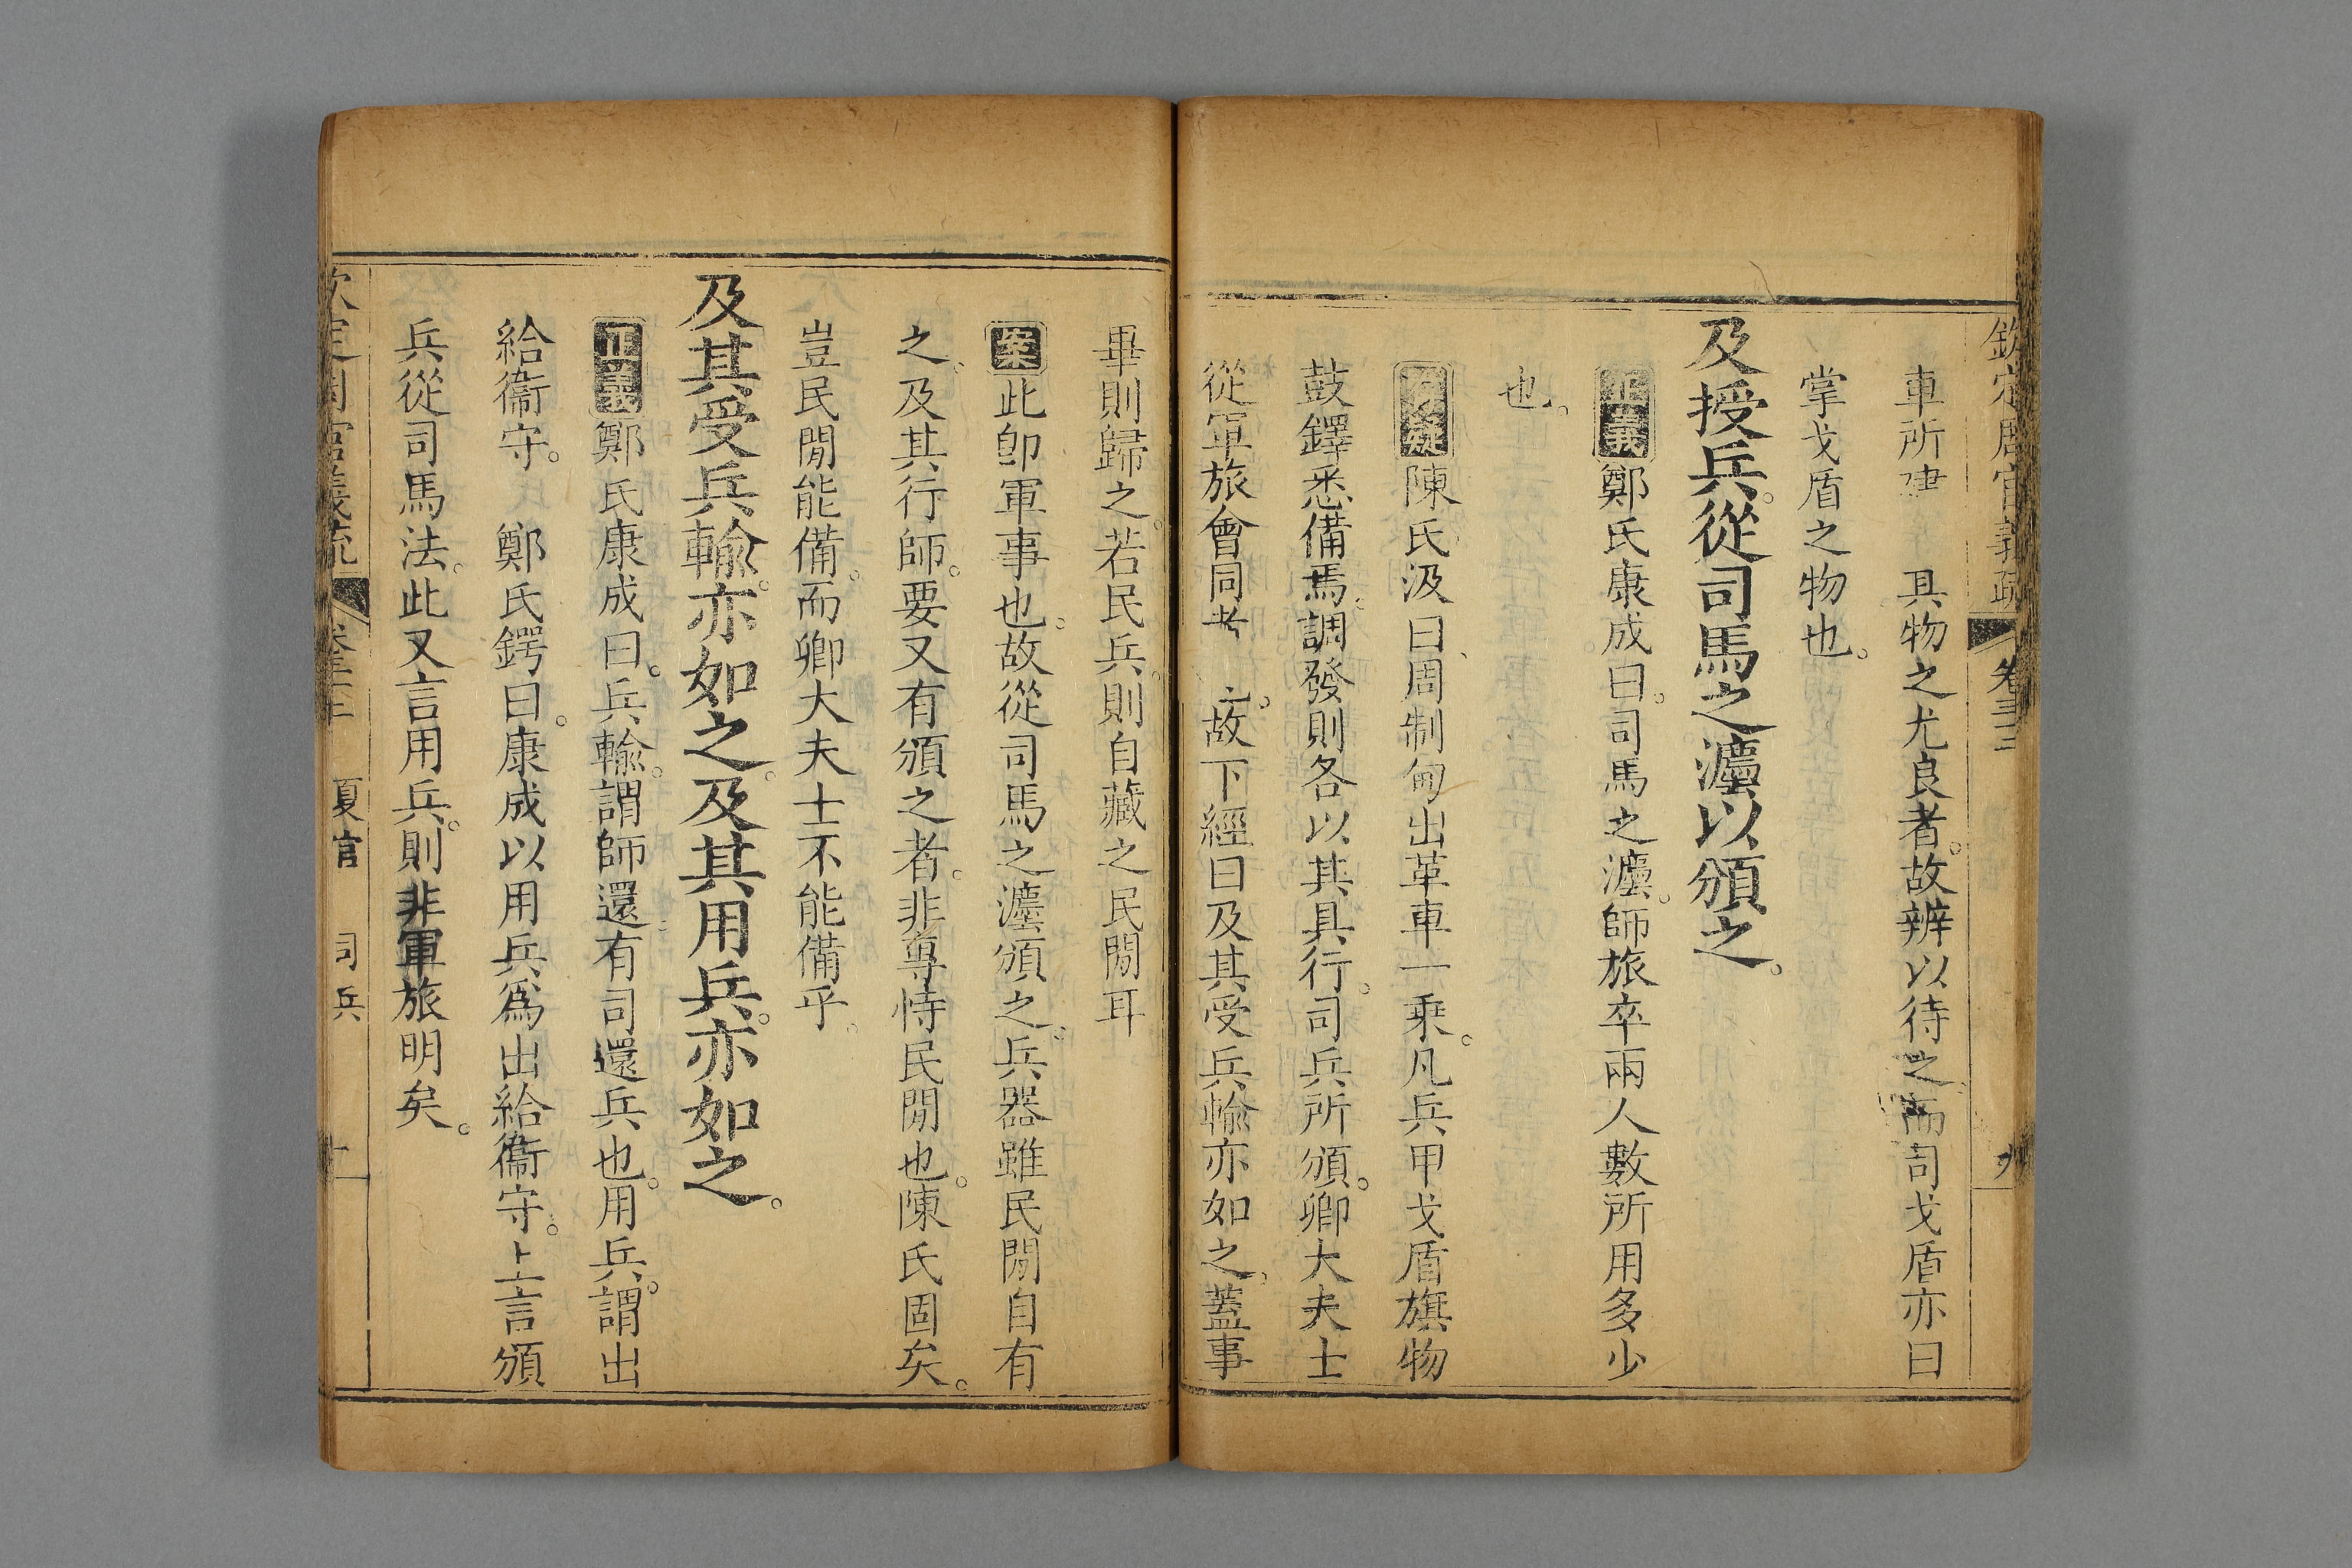 欽定周官義疏 卷三十二 九
車所建 具物之尤良者。故辨以待之而司戈盾亦曰
掌戈盾之物也。
及授兵。從司馬之灋以頒之。
正義鄭氏康成曰。司馬之灋。師旅卒兩人數所用多少
也。
存疑陳氏汲曰、周制甸出革車一乘。凡兵甲戈盾旗物
鼓鐸悉備焉。調發則各以其具行。司兵所頒。卿大夫士
從軍旅會同者 之。故下經曰及其受兵輸亦如之。蓋事
畢則歸之。若民兵。則自藏之民閒耳
案此卽軍事也。故從司馬之灋頒之。兵器雖民閒自有
之、及其行師。要又有頒之者。非專恃民閒也。陳氏固矣。
豈民閒能備。而卿大夫士不能備乎。
及其受兵輸。亦如之。及其用兵。亦如之。
正義鄭氏康成曰。兵輸。謂師還有司還兵也。用兵。謂出
給衞守。 鄭氏鍔曰。康成以用兵爲出給衞守。上言頒
兵從司馬法。此又言用兵。則非軍旅明矣。
欽定周官義疏 卷三十二 夏官 司兵